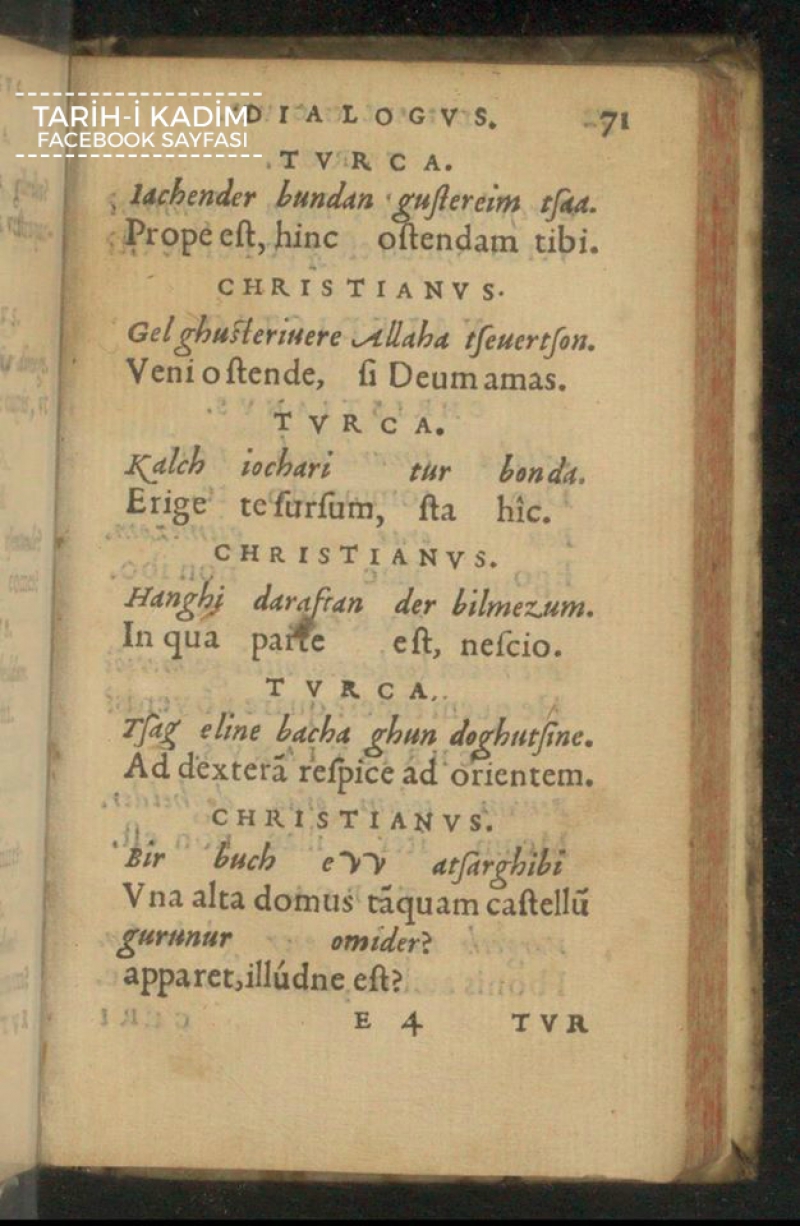 TARİH-İ KADİM
FACEBOOK SAYFASI
DIALOGVS. 71
TVRCA.
Iachender bundan guſtereim tſaa.
Prope eſt, hinc oſtendam tibi.
CHRISTIANVS.
Gel ghuſteriuere Allaha tſeuertſon.
Veni oſtende, ſi Deum amas.
TVRCA.
Kalch iochari tur bonda.
Erige te ſurſum, ſta hîc.
CHRISTIANVS.
Hanghi daraftan der bilmezum.
In qua parte eſt, neſcio.
TVRCA.
Tſag eline bacha ghun doghutſine.
Ad dexterā reſpice ad orientem.
CHRISTIANVS.
Bir buch evv atſarghibi
Vna alta domus tāquam caſtellū
gurunur omider?
apparet, illúdne eſt?
E 4 TVR